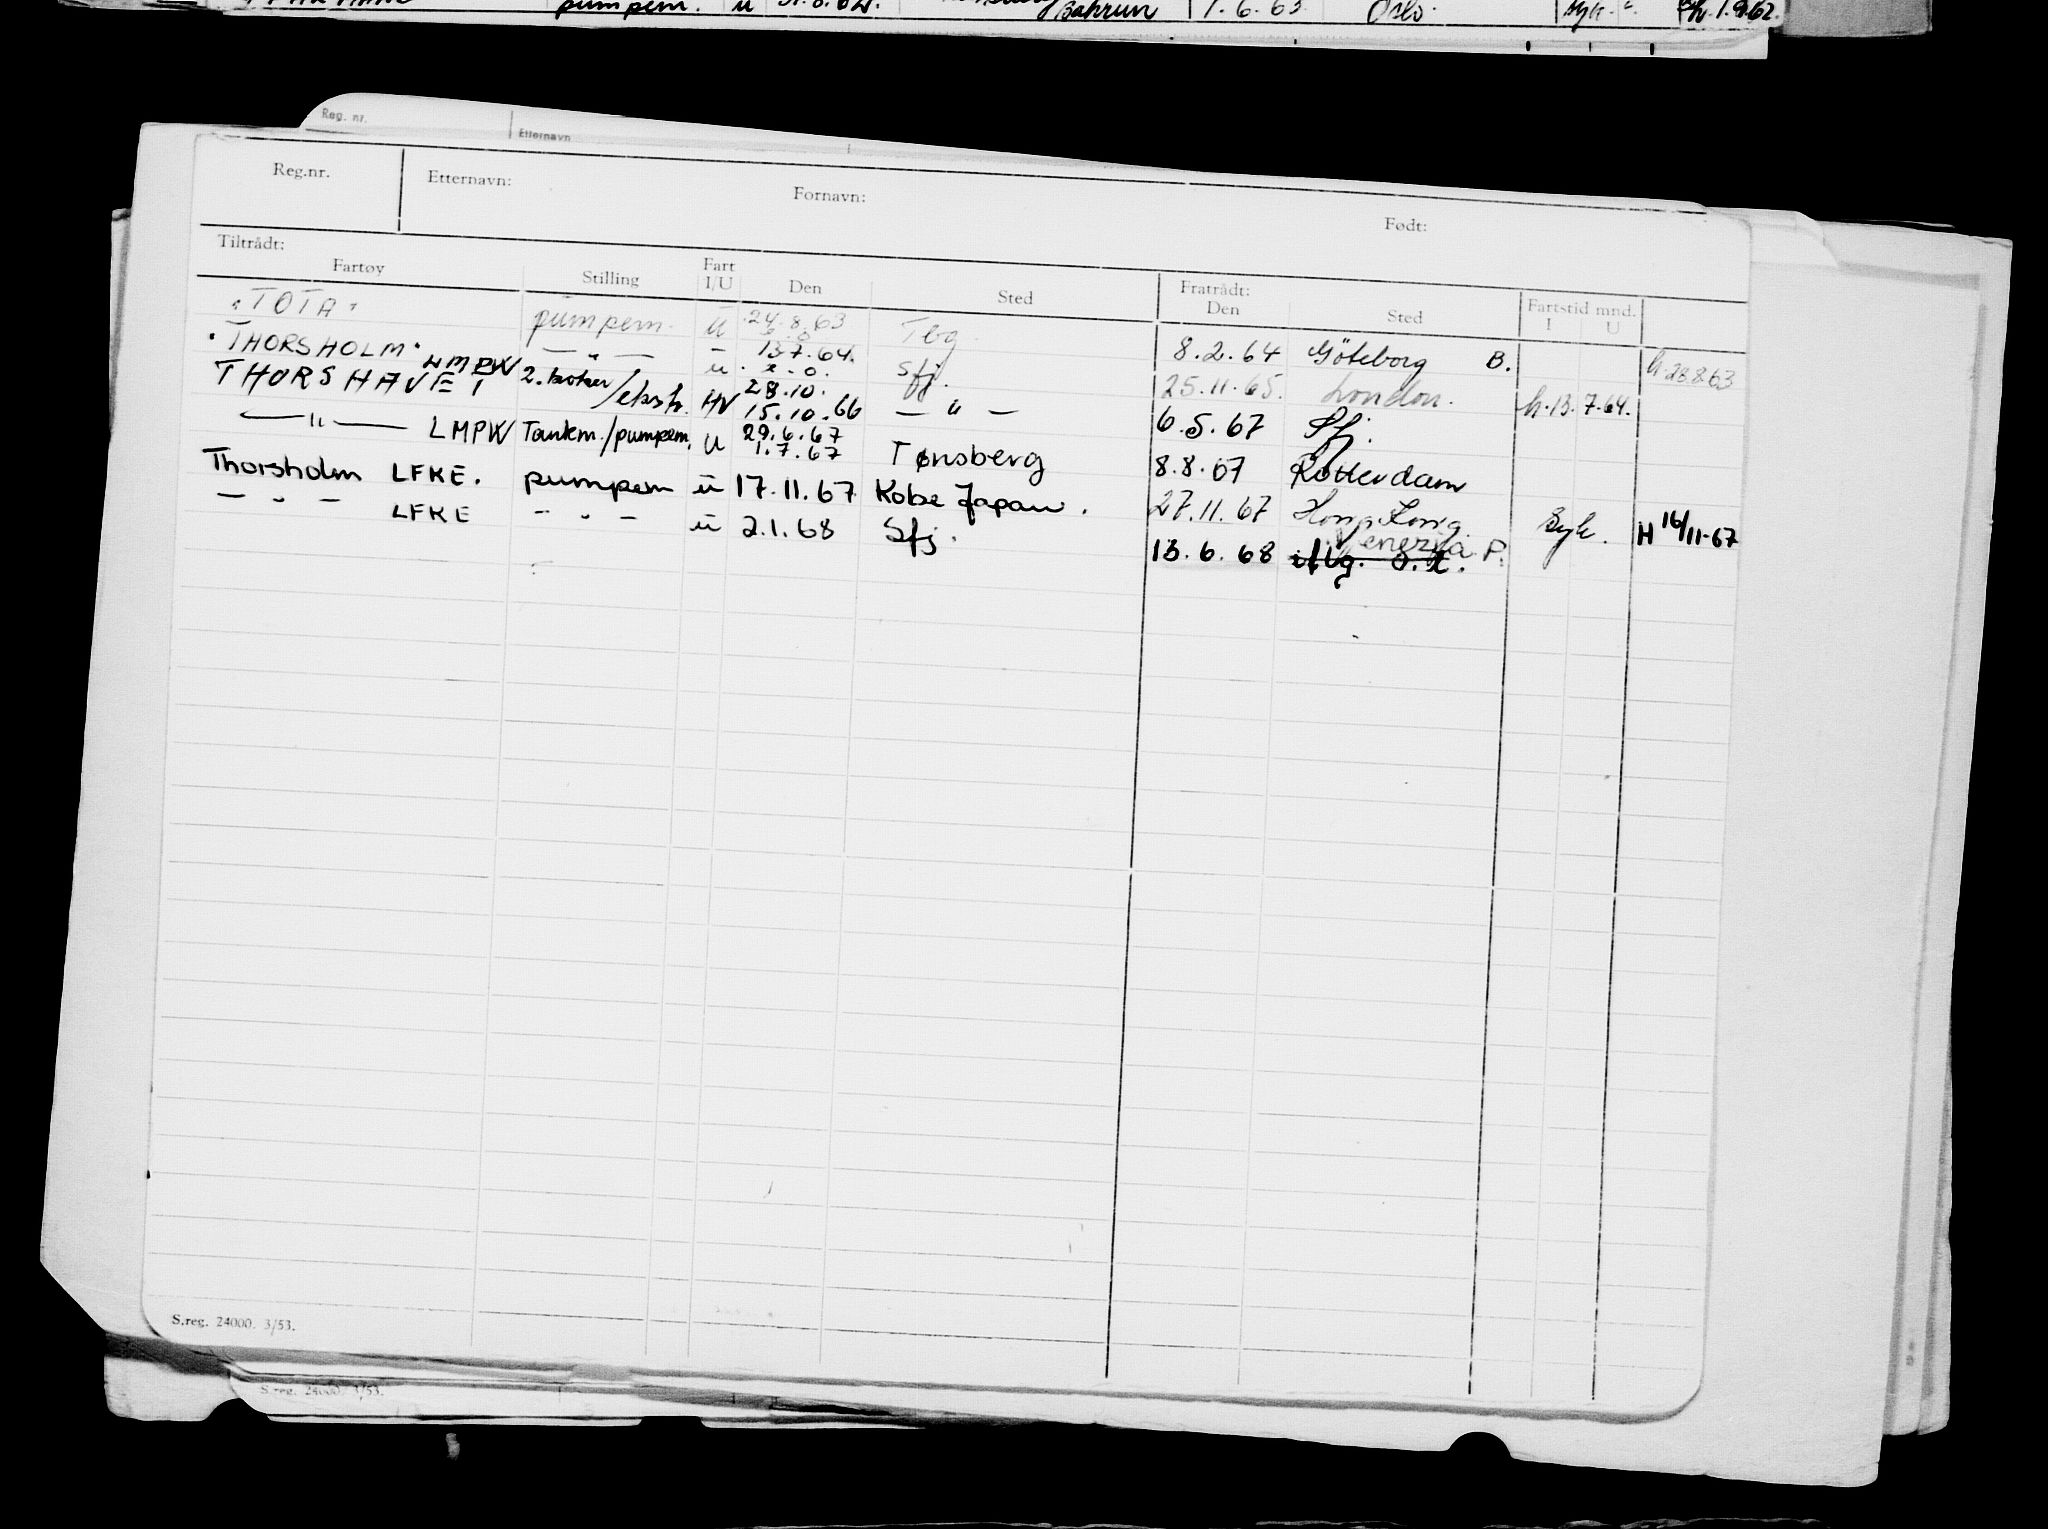 pumpem. u 31.8.62. Bahrein 1.6.63 Oslo. syk.
Reg. nr. Etternavn
Reg.nr. Etternavn: Fornavn: Født:
Tiltrådt: Fratrådt:
Fartøy Stilling Fart I/U Den Sted Den Sted Fartstid mnd. I U
"TOTA" pumpem. u 24.8.63 Tbg. 8.2.64 Göteborg B. h.23.8.63
"THORSHOLM" — " — u 13.7.64. Sfj. 25.11.65. London. h.13.7.64.
THORSHAVET LMPW 2. koker/ekstr. HV 28.10. 15.10.66 — " — 6.5.67 Sfj.
— " — LMPW Tankm./pumpem. U 29.6.67 1.7.67 Tønsberg 8.8.67 Rotterdam
Thorsholm LFKE. pumpem u 17.11.67 Kobe Japan. 27.11.67 Hong Kong Syk. H 16/11-67
— " — LFKE — " — u 2.1.68 Sfj. 13.6.68 Venezia P.
S.reg. 24000. 3/53.
S.reg. 24000. 3/53.